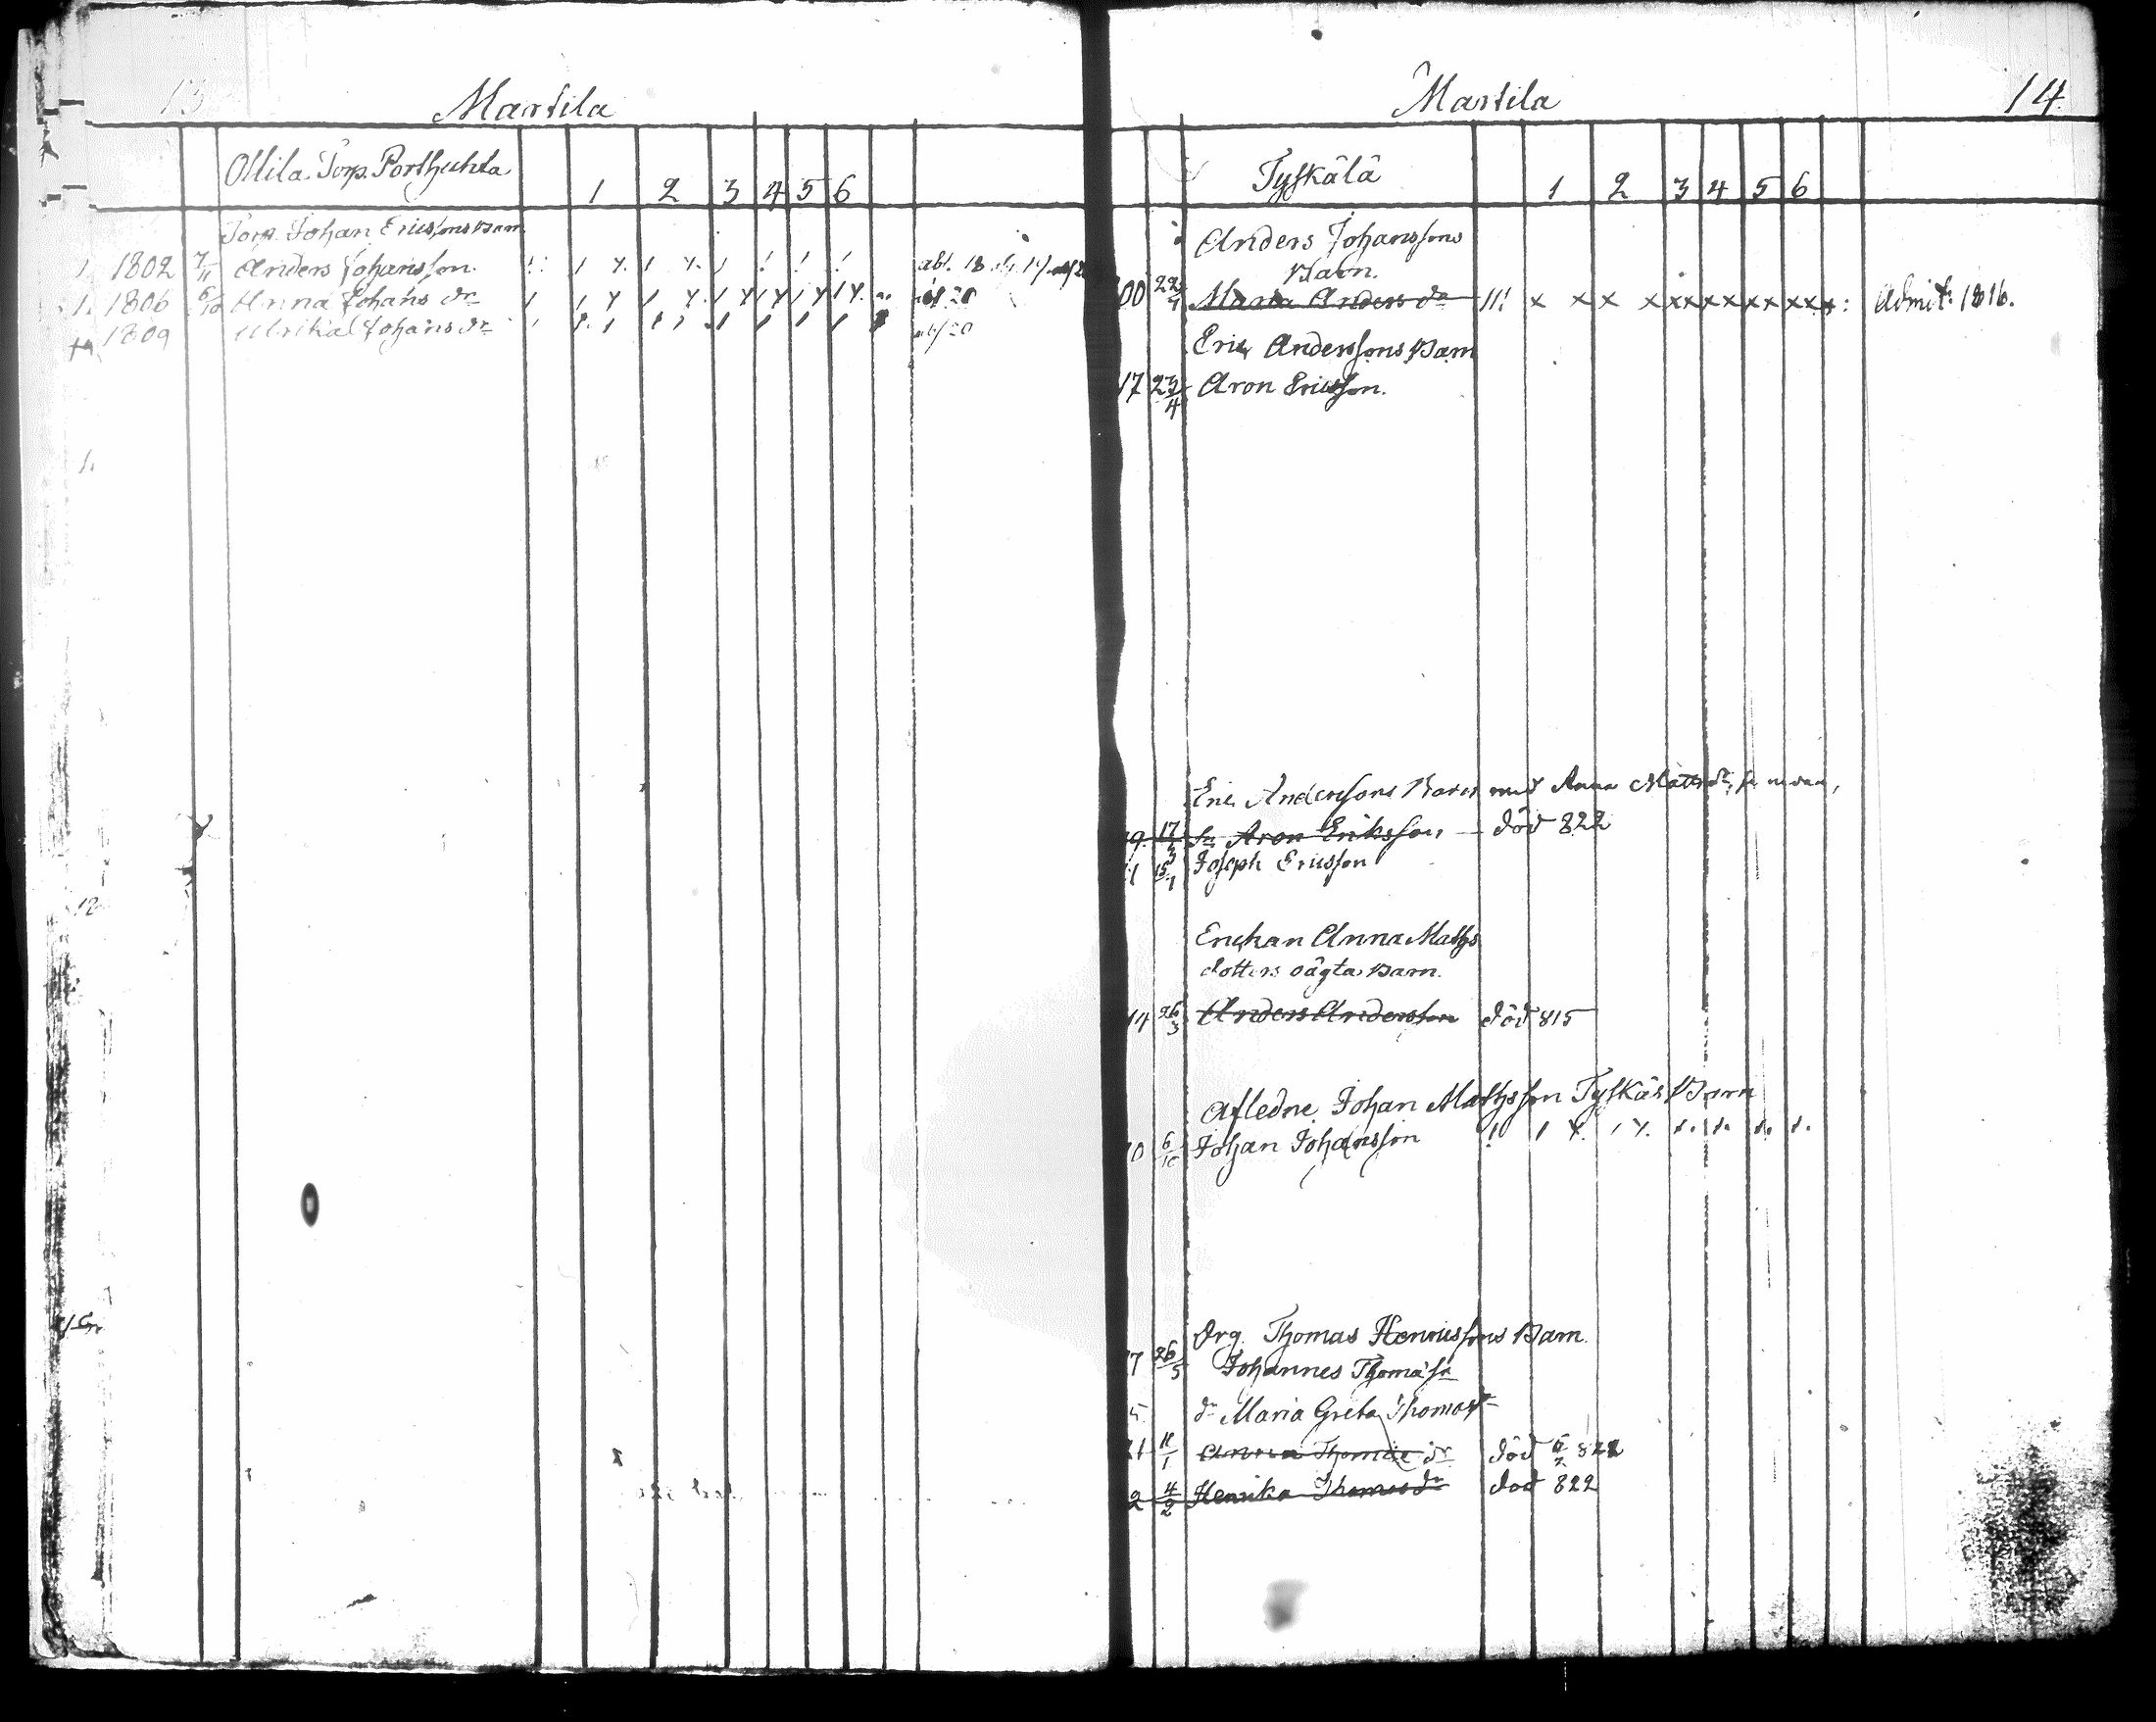 13
Martila
Ollila Torp. Porthuhta 1 2 3 4 5 6
Torp. Johan Ericssons Barn
1802 7/11 Anders Johansson
1806 6/10 Anna Johans dr
1809 Ulrika Johans dr
Martila 14.
Tyskälä 1 2 3 4 5 6
Anders Johanssons
Barn.
00 22/7 Maria Anders dr Admit: 1816.
Eric Anderssons Barn
17 23/4 Aron Ericsson.
Eric Anderssons Barn med Anna Matts dr
19. 17/3 Sn Aron Eriksson, död 822
21 15/1 Joseph Ericsson
Enckan Anna Maths
dotters oägta Barn.
14 26/3 Anders Andersson död 815
Afledne Johan Mathsson Tyskäs Barn
10 6/10 Johan Johansson
Drg. Thomas Henricssons Barn
17 26/5 Johannes Thomas sn
dr Maria Greta Thomas dr
21 11/1 Anna Thomas dr död 822
2 4/2 Henrika Thomas dr död 822